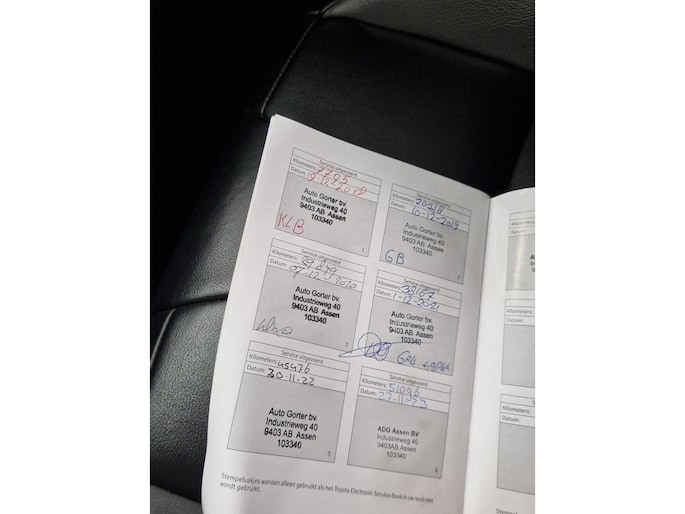 Service uitgevoerd
Kilometers: 7705
Datum: 2018
Auto Gorter bv.
Industrieweg 40
9403 AB Assen
103340
KLB
1
Service uitgevoerd
Kilometers: 20218
Datum: 10-12-2019
Auto Gorter bv.
Industrieweg 40
9403 AB Assen
103340
GB
Service uitgevoerd
Kilometers: 29849
Datum: 07-12-2020
Auto Gorter bv.
Industrieweg 40
9403 AB Assen
103340
3
Service uitgevoerd
Kilometers: 38167
Datum: 1-12-2021
Auto Gorter bv.
Industrieweg 40
9403 AB Assen
103340
Service uitgevoerd
Kilometers: 45476
Datum: 30-11-22
Auto Gorter bv.
Industrieweg 40
9403 AB Assen
103340
5
Service uitgevoerd
Kilometers: 51096
Datum: 27-11-23
ADG Assen BV
Industrieweg 40
9403AB Assen
103340
6
Stempelvakjes worden alleen gebruikt als het Toyota Electronic Service Book in uw land niet
wordt gebruikt.
Kilometers:
Datum:
Kilometers:
Datum:
Service
Kilometers:
Datum: